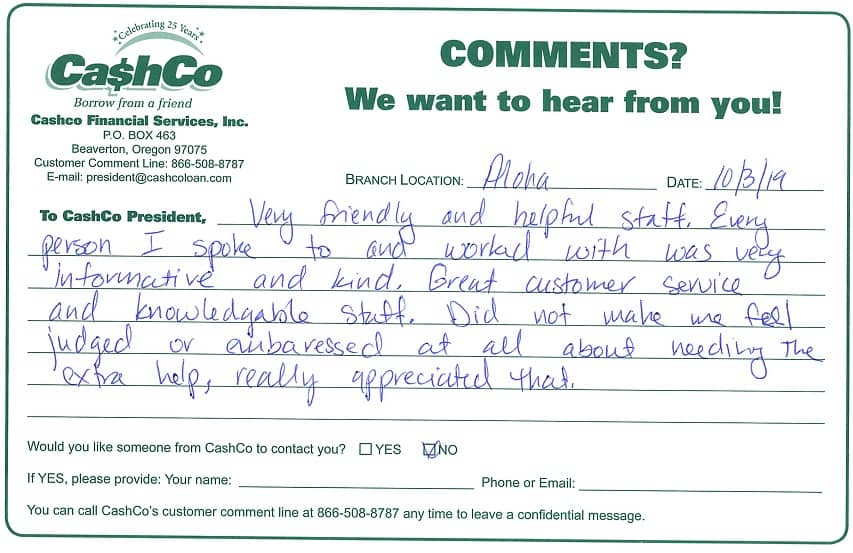 Celebrating 25 Years
Ca$hCo
Borrow from a friend
Cashco Financial Services, Inc.
P.O. BOX 463
Beaverton, Oregon 97075
Customer Comment Line: 866-508-8787
E-mail: president@cashcoloan.com
COMMENTS?
We want to hear from you!
BRANCH LOCATION: Aloha DATE: 10/3/19
To CashCo President, Very friendly and helpful staff. Every
person I spoke to and worked with was very
informative and kind. Great customer service
and knowledgable staff. Did not make me feel
judged or embaressed at all about needing the
extra help, really appreciated that.
Would you like someone from CashCo to contact you? YES NO
If YES, please provide: Your name: Phone or Email:
You can call CashCo's customer comment line at 866-508-8787 any time to leave a confidential message.